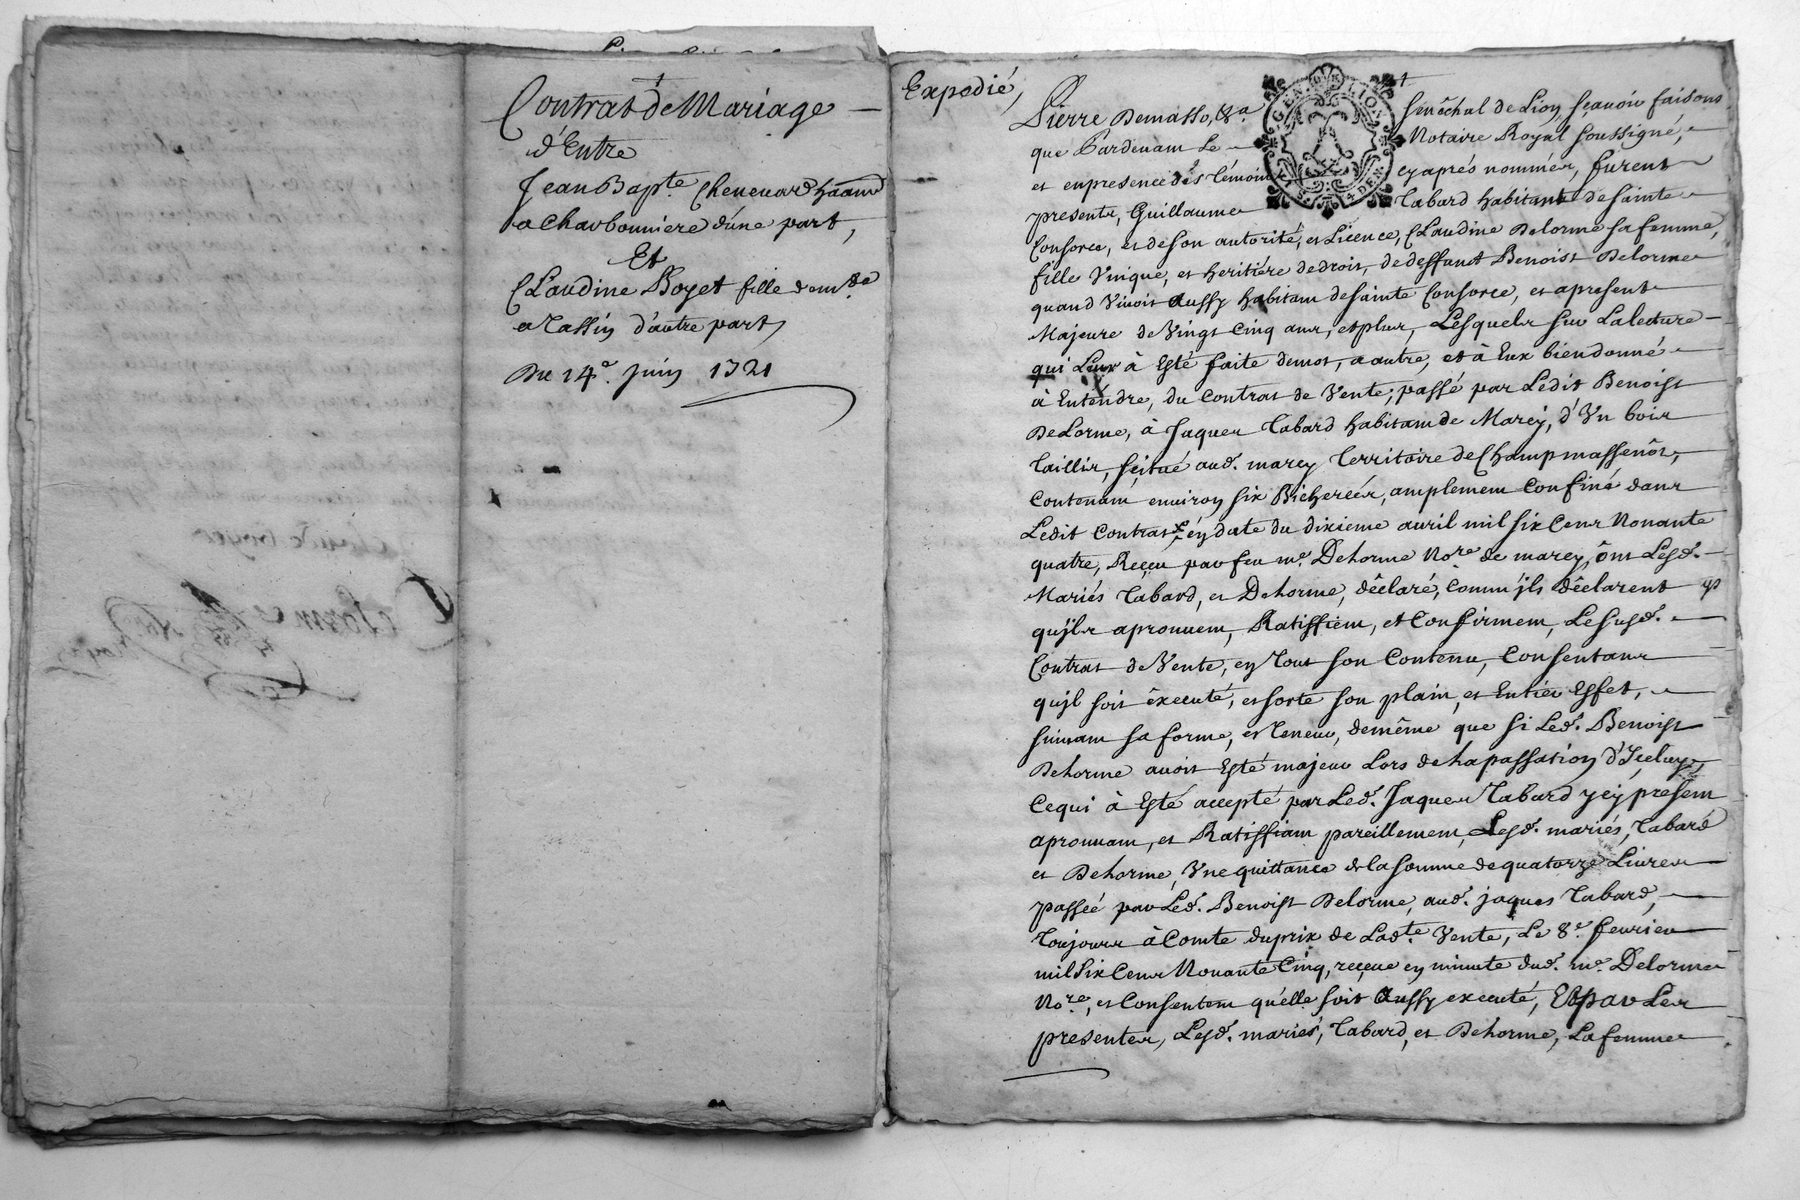 Contrat de Mariage
d'Entre
Jean Bapte. Cheneuard hãant
a Charbonniere d'une part,
Et
Claudine Boyet fille demte
a Tassin d'autre part,
Du 14e. juin 1721
Expedié,
Pierre Demasso, &a Senêchal de Lion, sçauoir faisons
que Pardeuant Le Notaire Royal soussigné,
et en presence des témoins cy aprés nommés, furent
presents, Guillaume Tabard habitant de sainte
Consorce, et de son autorité, et Licence, Claudine Delorme sa femme,
fille Vnique, et heritiére de droit, de deffunct Benoist Delorme
quand Viuoit Aussy habitant de sainte Consorce, et a present
Majeure de Vingt Cinq ans, et plus, Lesquels sur La lecture
qui Leur à Esté faite de mot, a autre, et à Eux bien donné
à Entendre, du Contrat de Vente, passé par Ledit Benoist
DeLorme, à Jaques Tabard habitant de Marcy, d'Vn bois
Taillis, scitué aud. marcy Territoire de Champmassenôt,
Contenant enuiron six Bicherées, amplement Confiné dans
Ledit Contrat en date du dixieme auril mil six Cens Nonante
quatre, Reçeu par feu me. Delorme Nore. de marcy, ônt Lesd.
Mariés Tabard, et Delorme, dêclaré, Comm'jls dêclarent
qu'jls aprouuent, Ratiffient, et Confirment, Le susd.
Contrat de Vente, en Tout son Contenu, Consentans
qu'jl soit êxecuté, et sorte son plain, et Entier Effet,
suiuant sa forme, et Teneur, de même que si Led. Benoist
Delorme auoit Esté majeur Lors de La passation d'Jceluy,
Ce qui à Esté accepté par Led. Jaques Tabard jcy present
aprouuant, et Ratiffiant pareillement, Lesd. mariés, Tabard
et Delorme, Vne quittance de la somme de quatorze Liures
passée par Led. Benoist Delorme, aud. jaques Tabard,
Toujours à Comte du prix de Ladte. Vente, Le 8e. feurier
mil Six Cens Nonante Cinq, reçeue en minute dud. me. Delorme
Nore., et Consentent qu'elle soit Aussy executé, Et par Les
presentes, Lesd. mariés, Tabard, et Delorme, La femme